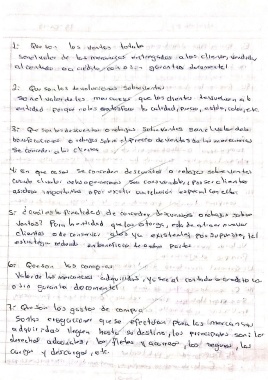 1: Que son las ventas totales
Son el valor de las mercancías entregadas a los clientes, vendidas
al contado o a crédito, con o sin garantía documental
2: Que son las devoluciones sobre ventas
Son el valor de las mercancías que los clientes devuelven a la
entidad porque no les satisface la calidad, precio, estilo, color, etc
3: Que son los descuentos o rebajas sobre ventas son el valor de las
bonificaciones o rebajas sobre el precio de ventas de las mercancías
se conceden a los clientes
4: en que casos se conceden descuentos o rebajas sobre ventas
cuando el valor es considerable, por ser el cliente
importante o por existir una relación especial con ellos
5: ¿Cuál es la finalidad de conceder descuentos o rebajas sobre
ventas? Para la entidad que los otorga, es de atraer nuevos
clientes o de conservar a los ya existentes, por supuesto, tal
estrategia redunda en beneficios de ambas partes
6: Que son las compras
Valor de las mercancías adquiridas, ya sea al contado o a crédito con
o sin garantía documental
7: Que son los gastos de compra
Son las erogaciones que se efectúan para las mercancías
adquiridas lleguen hasta su destino, los principales son: los
derechos aduanales, los fletes y acarreos, los seguros, las
cargas y descargas, etc.